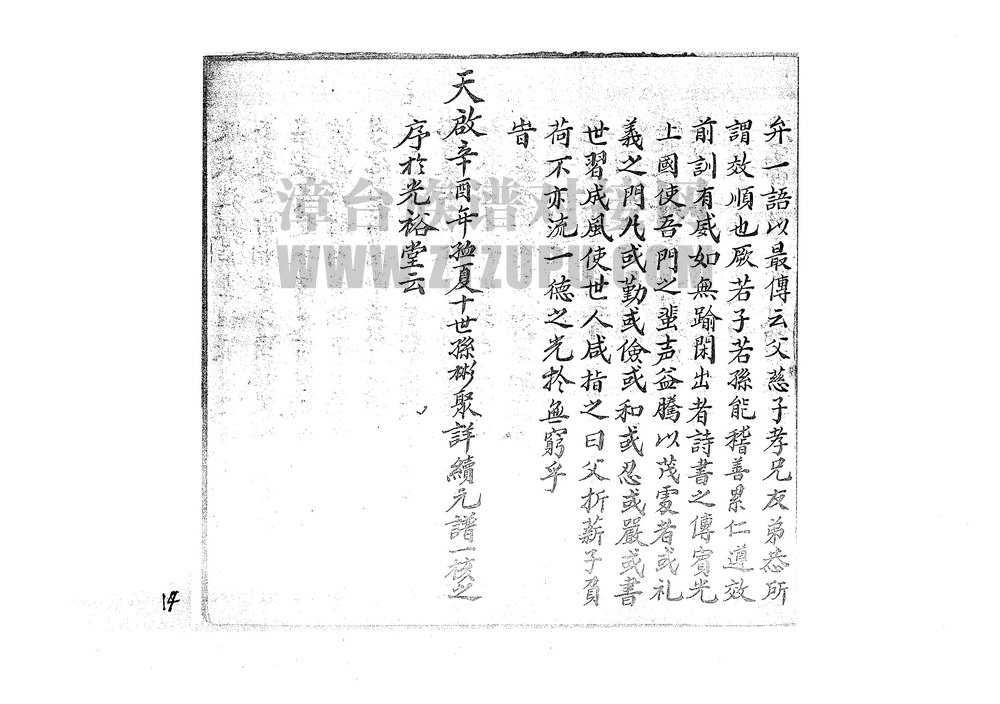 弁一語以最傳云父慈子孝兄友弟恭所
謂效順也厥若子若孫能稽善累仁遵效
前訓有威如無踰閑出者詩書之傳賓光
上國使吾門之蜚声益騰以茂處者或礼
義之門凡或勤或儉或和或忍或嚴或書
世習成風使世人咸指之曰父折薪子負
荷不亦流一德之光於無窮乎
旹
天啟辛酉年孟夏十世孫彬聚詳續元譜一核之
序於光裕堂云
漳台族谱对接网
WWW.ZTZUPU.COM
14